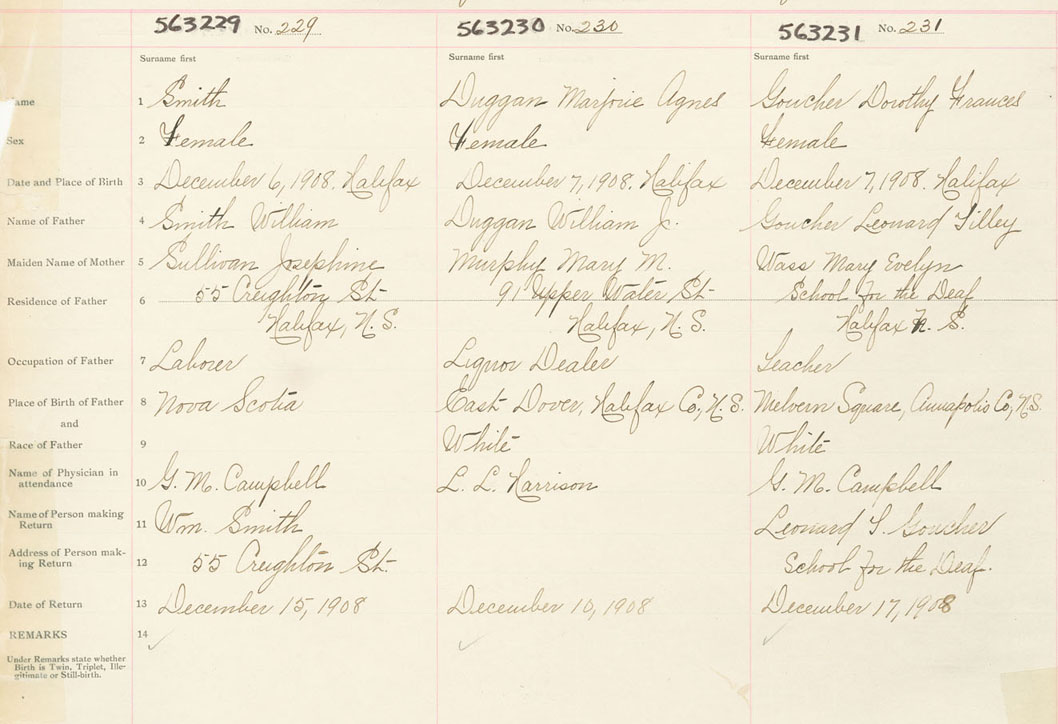 563229 No. 229 563230 No. 230 563231 No. 231
Surname first Surname first Surname first
ame 1 Smith Duggan Marjorie Agnes Goucher Dorothy Frances
Sex 2 Female Female Female
Date and Place of Birth 3 December 6, 1908. Halifax December 7, 1908. Halifax December 7, 1908. Halifax
Name of Father 4 Smith William Duggan William J. Goucher Leonard Tilley
Maiden Name of Mother 5 Sullivan Josephine Murphy Mary M. Wass Mary Evelyn
Residence of Father 6 55 Creighton St. 91 Upper Water St. School for the Deaf
Halifax, N. S. Halifax, N. S. Halifax N. S.
Occupation of Father 7 Laborer Liquor Dealer Teacher
Place of Birth of Father 8 Nova Scotia East Dover, Halifax Co, N. S. Melvern Square, Annapolis Co, N.S.
and
Race of Father 9 White White
Name of Physician in
attendance 10 G. M. Campbell L. L. Harrison G. M. Campbell
Name of Person making
Return 11 Wm. Smith Leonard T. Goucher
Address of Person mak-
ing Return 12 55 Creighton St. School for the Deaf.
Date of Return 13 December 15, 1908 December 10, 1908 December 17, 1908
REMARKS 14
Under Remarks state whether
Birth is Twin, Triplet, Ille-
gitimate or Still-birth.